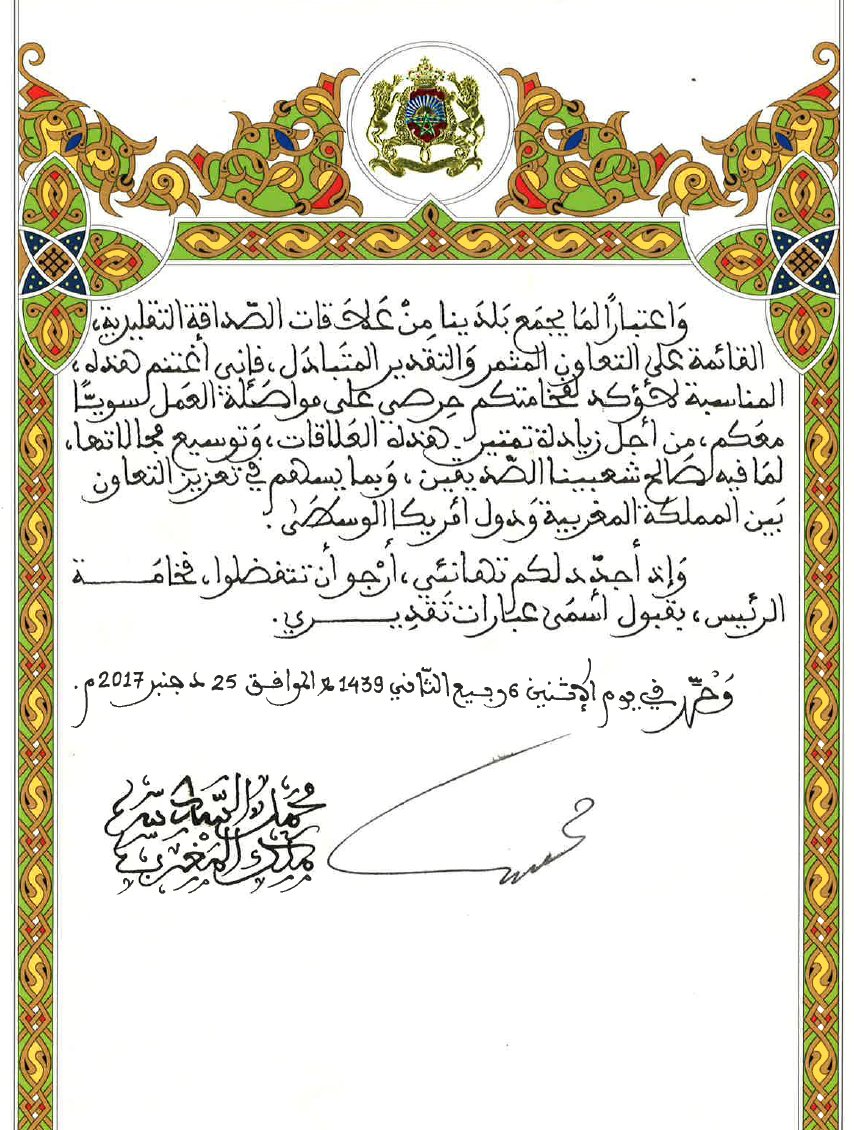 وَاعتبارًا لمَا يجمَع بَلدَينا مِنْ عَلاَقات الصّداقة التقليدية،
القائمة على التعاون المثمر وَالتقدير المتبَادَل، فإني أغتنم هذه
المناسبة لأؤكد لفخَامتكم حِرصي على موَاصَلة العَمل سويـًّا
معَكم، من أجل زيادة تمتين هذه العَلاقات، وَتوسيع مجالاتها،
لمَا فيه لصَالح شعبينا الصّديقين، وَبما يسهم في تعزيز التعاون
بَين المملكة المغربية وَدول أمريكا الوسطَى.
وَإذ أجدّد لكم تهانئي، أرْجو أن تتفضلوا، فخامَـــــة
الرئيس، بقبول أسْمَى عبارات تَقدِيـــــري.
وَحُرّر في يوم الإثنين 6 ربيع الثّاني 1439 هـ الموافـق 25 دجنبر 2017 م.
محمد السّادس
مَلك المَغْرب